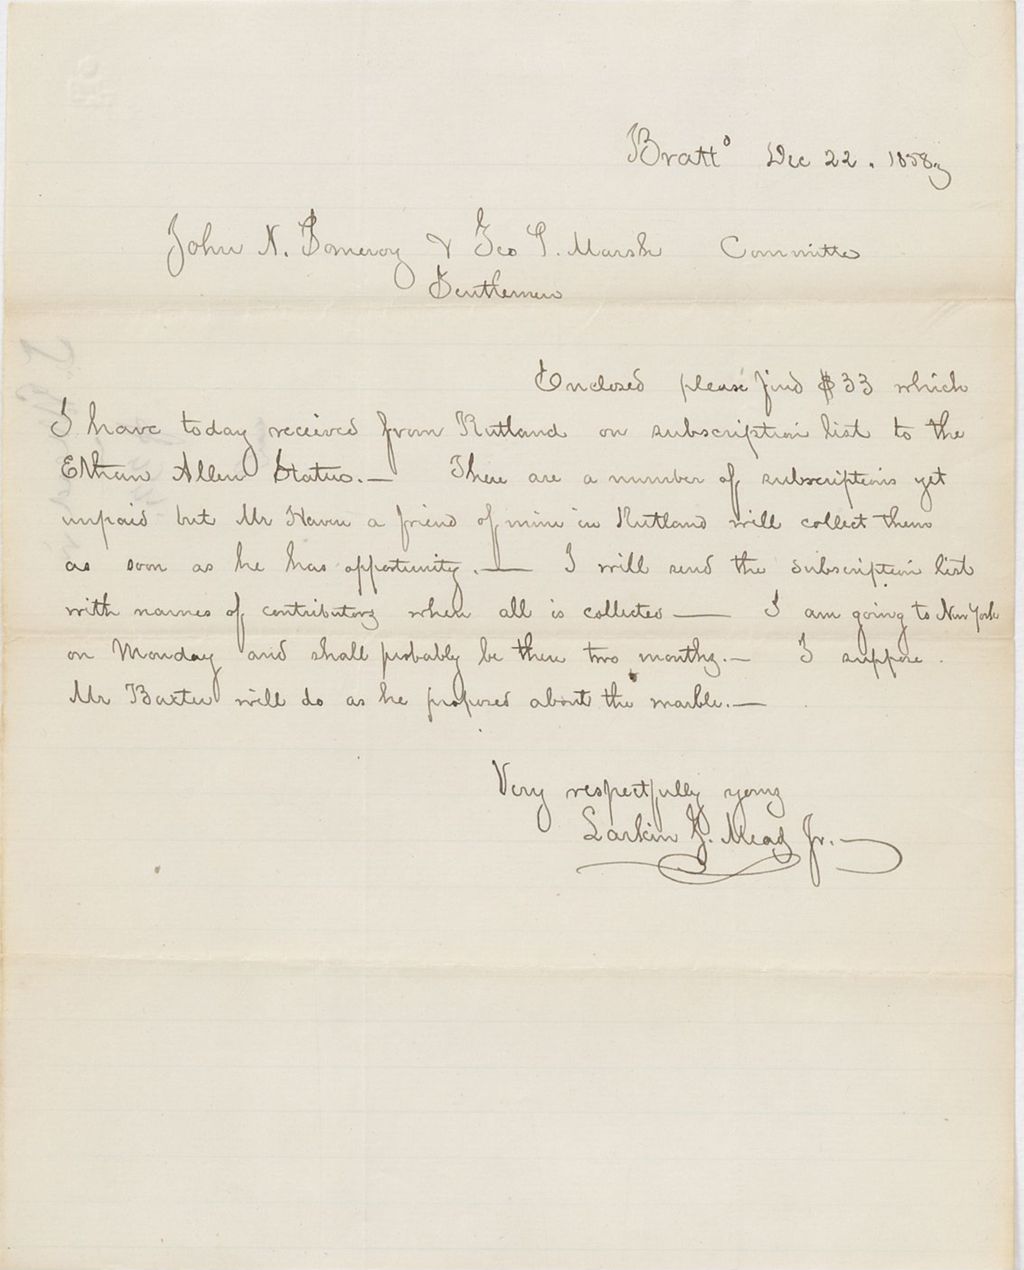 Bratto Dec 22. 1858
John N. Pomeroy & Geo P. Marsh Committee
Gentlemen
Enclosed please find $33 which
I have today received from Rutland on subscription list to the
Ethan Allen Statue.— There are a number of subscriptions yet
unpaid but Mr Haven a friend of mine in Rutland will collect them
as soon as he has opportunity.— I will send the subscription list
with names of contributors when all is collected — I am going to New York
on Monday and shall probably be there two months.— I suppose
Mr Baxter will do as he proposed about the marble.—
Very respectfully yours
Larkin G. Mead Jr.—